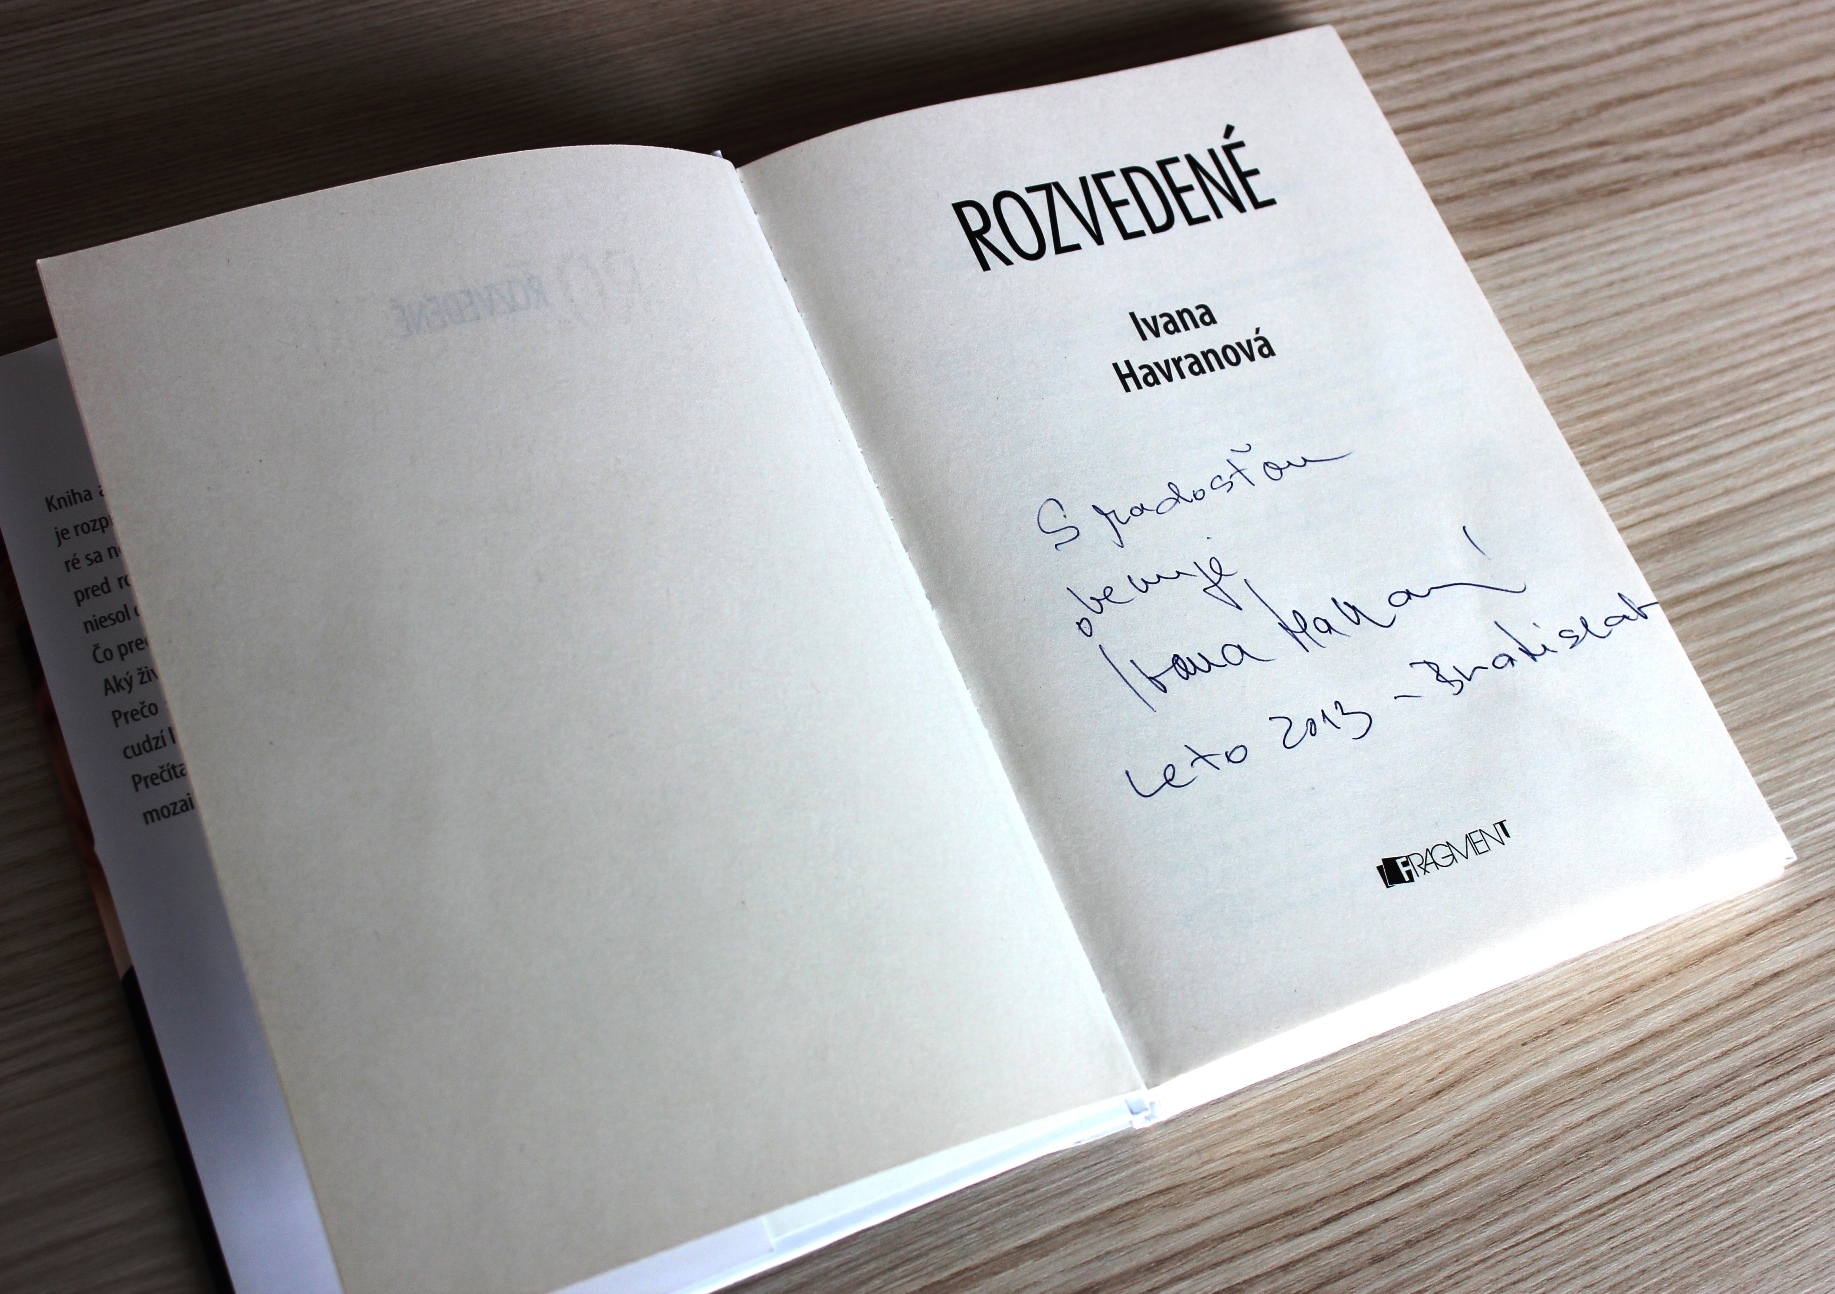 Kniha a
je rozp
ré sa n
pred ro
niesol
Čo pre
Aký živ
Prečo
cudzí
Prečíta
mozai
ROZVEDENÉ
ROZVEDENÉ
Ivana
Havranová
S radosťou
venuje
Ivana Havranová
Leto 2013 - Bratislava
FRAGMENT